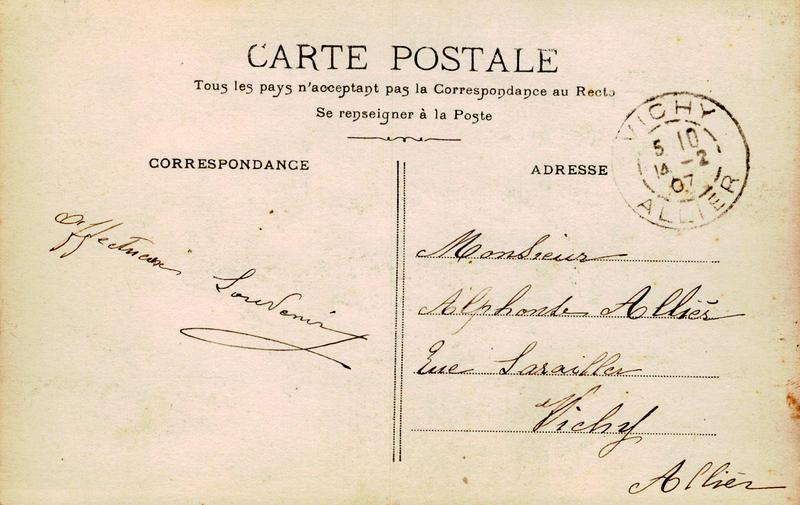 CARTE POSTALE
Tous les pays n'acceptant pas la Correspondance au Recto
Se renseigner à la Poste
CORRESPONDANCE
ADRESSE
VICHY
5 10
14 - 2
07
ALLIER
Affectueux
Souvenir
Monsieur
Alphonse Allier
Rue
Vichy
Allier